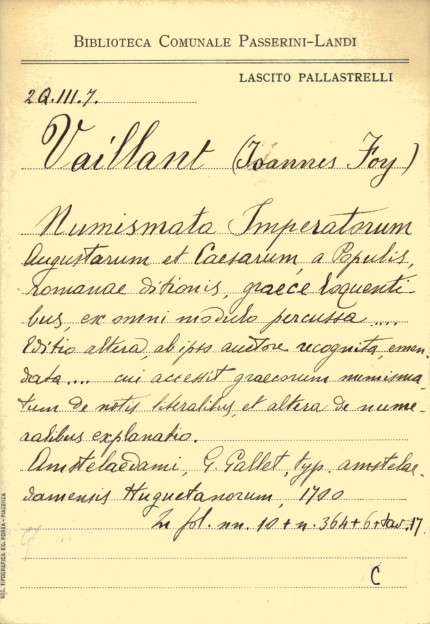 BIBLIOTECA COMUNALE PASSERINI-LANDI
LASCITO PALLASTRELLI
2Q.III.7.
Vaillant (Joannes Foy)
Numismata Imperatorum
Augustarum et Caesarum, a Populis,
Romanae ditionis, graece loquenti-
bus, ex omni modulo percussa ....
Editio altera, ab ipso auctore recognita, emen-
data .... cui accessit graecorum numisma-
tum de notis literalibus, et altera de nume-
ralibus explanatio.
Amstelaedami, G. Gallet, typ. amstelae-
damensis Huguetanorum, 1700
In fol. nn. 10 + n. 364 + 6 + tav. 17.
C
SOC. TIPOGRAFICA ED. PORTA - PIACENZA